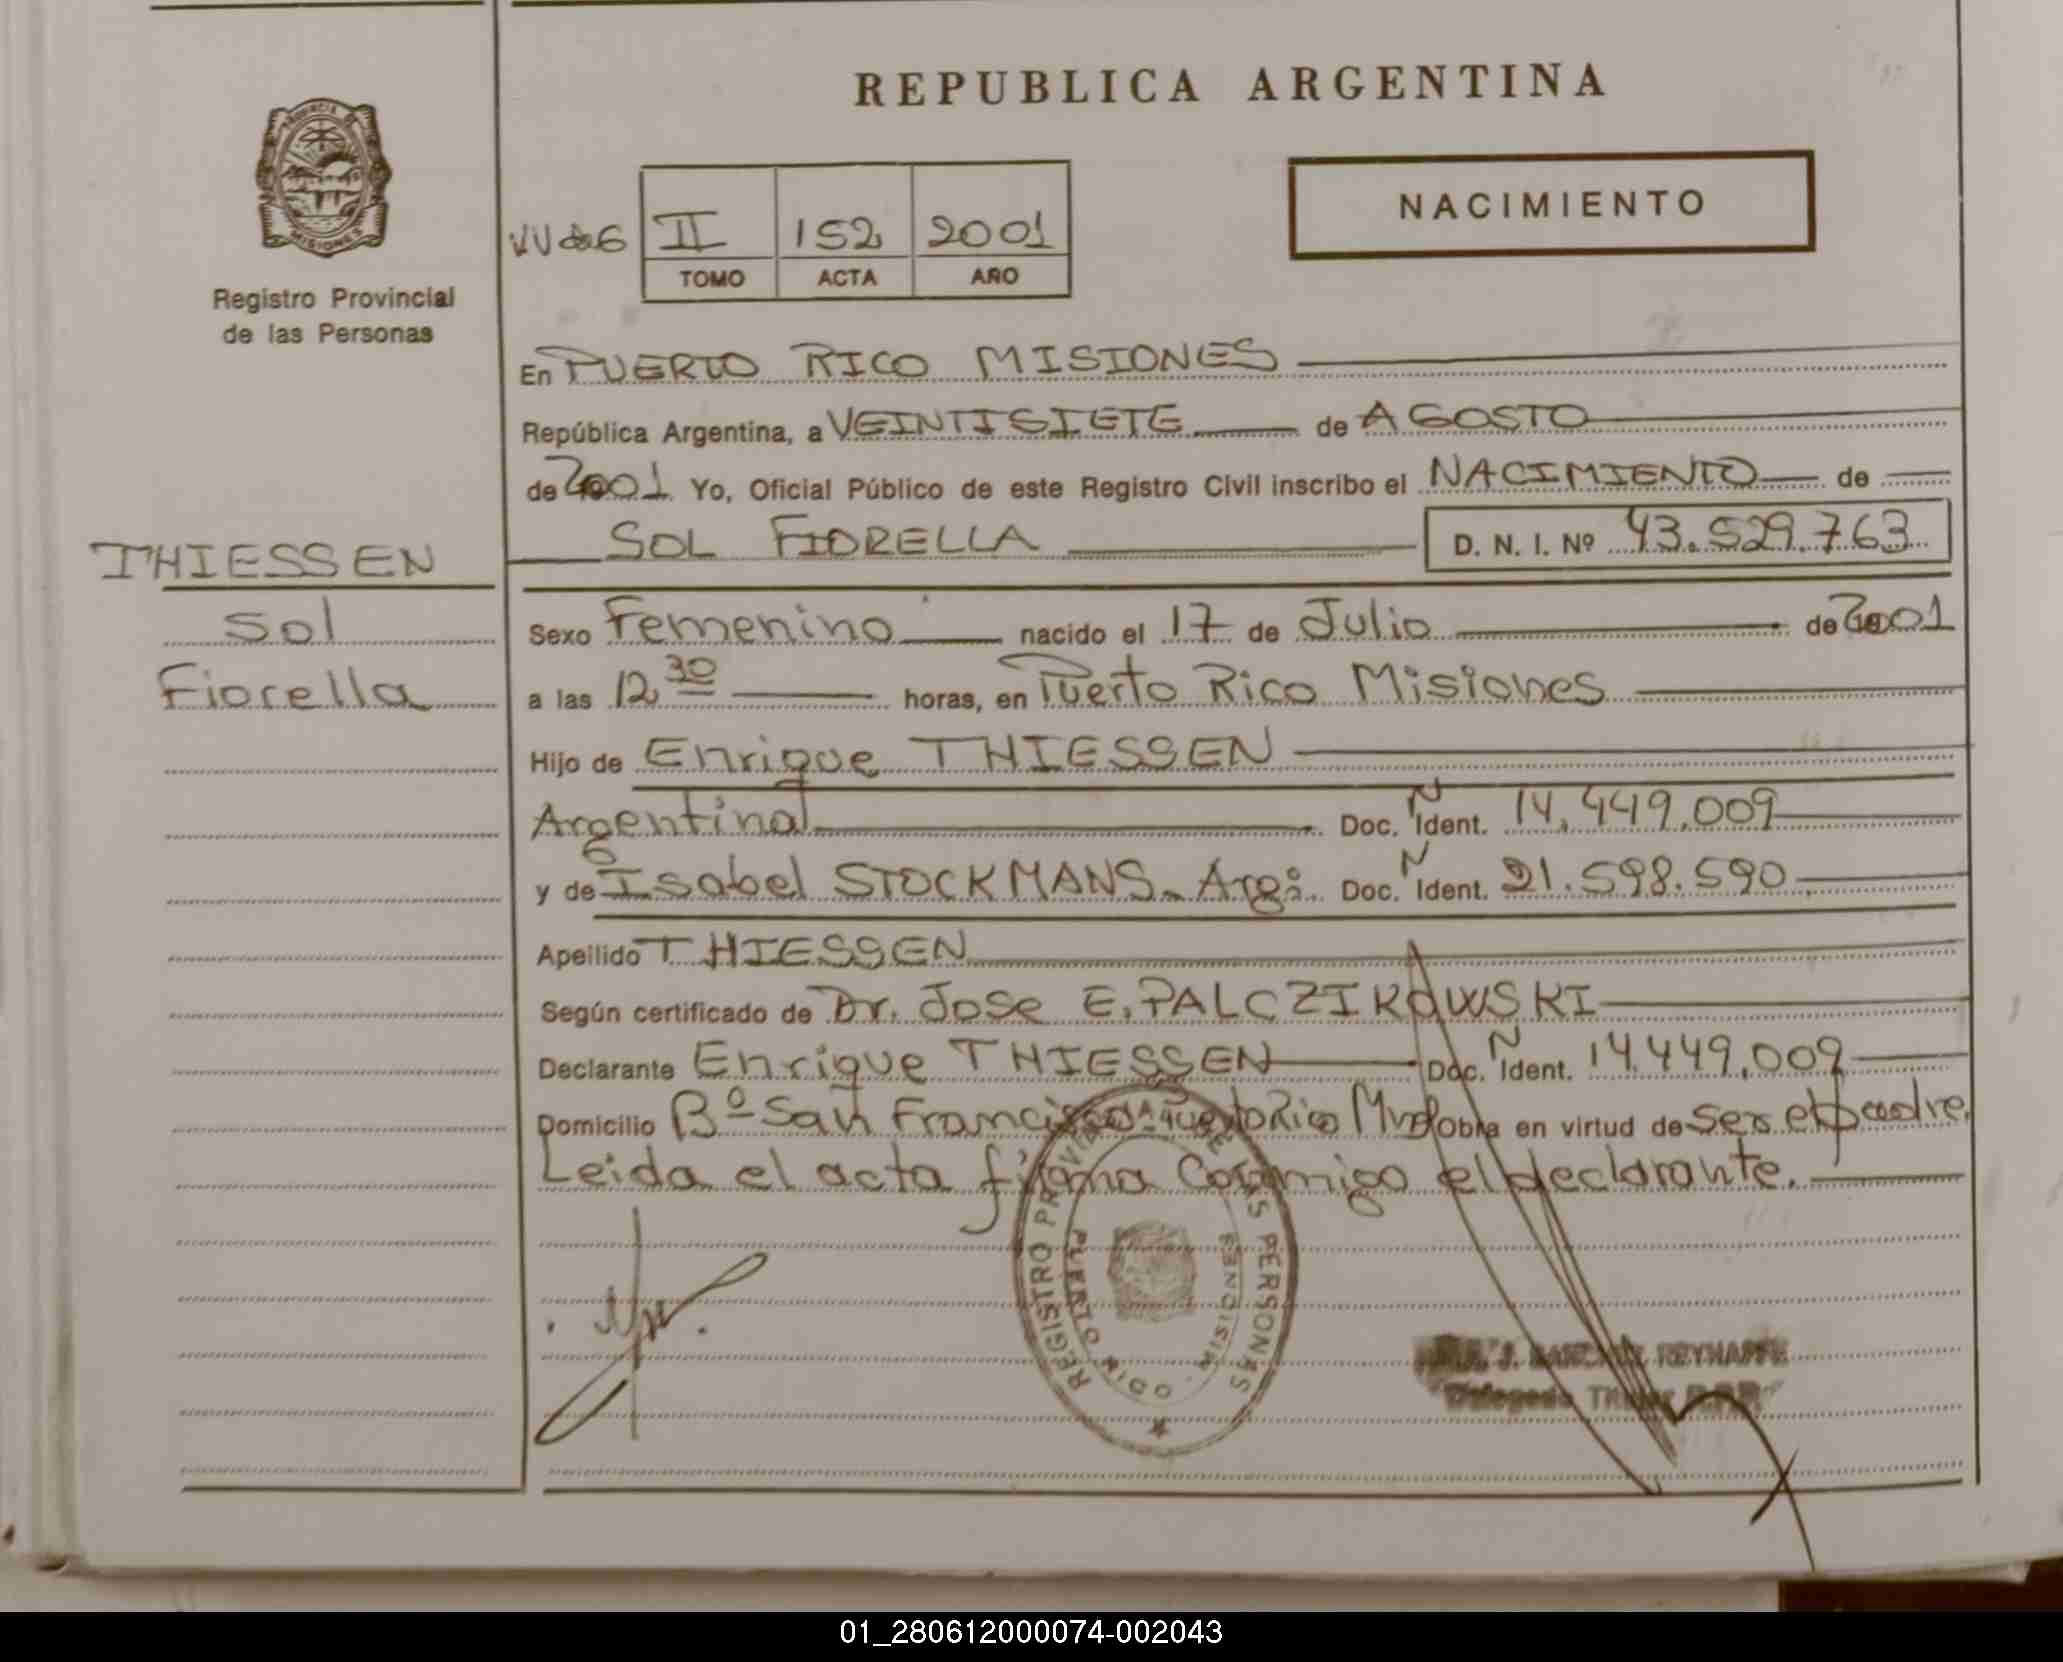 REPUBLICA ARGENTINA
PROVINCIA DE
MISIONES
Registro Provincial
de las Personas
NACIMIENTO
II 152 2001
TOMO ACTA AÑO
En PUERTO RICO MISIONES
República Argentina, a VEINTISIETE de AGOSTO
de 2001 Yo, Oficial Público de este Registro Civil inscribo el NACIMIENTO de
SOL FIORELLA D. N. I. Nº 43.529.763
THIESSEN
Sol
Fiorella
Sexo Femenino nacido el 17 de Julio de 2001
a las 12,30 horas, en Puerto Rico Misiones
Hijo de Enrique THIESSEN
Argentina Doc. N Ident. 14.449.009
y de Isabel STOCKMANS. Arg: Doc. N Ident. 21.598.590
Apellido THIESSEN
Según certificado de Dr. Jose E. PALCZIKOWSKI
Declarante Enrique THIESSEN Doc. N Ident. 14.449.009
Domicilio Bº San Francisco Puerto Rico Mnes Obra en virtud de ser el padre.
Leida el acta firma Conmigo el declarante.
REGISTRO PROVINCIAL DE LAS PERSONAS
PUERTO RICO - MISIONES
J. SANCHEZ REYNAFFE
Delegado Titular R.P.P.
01_280612000074-002043